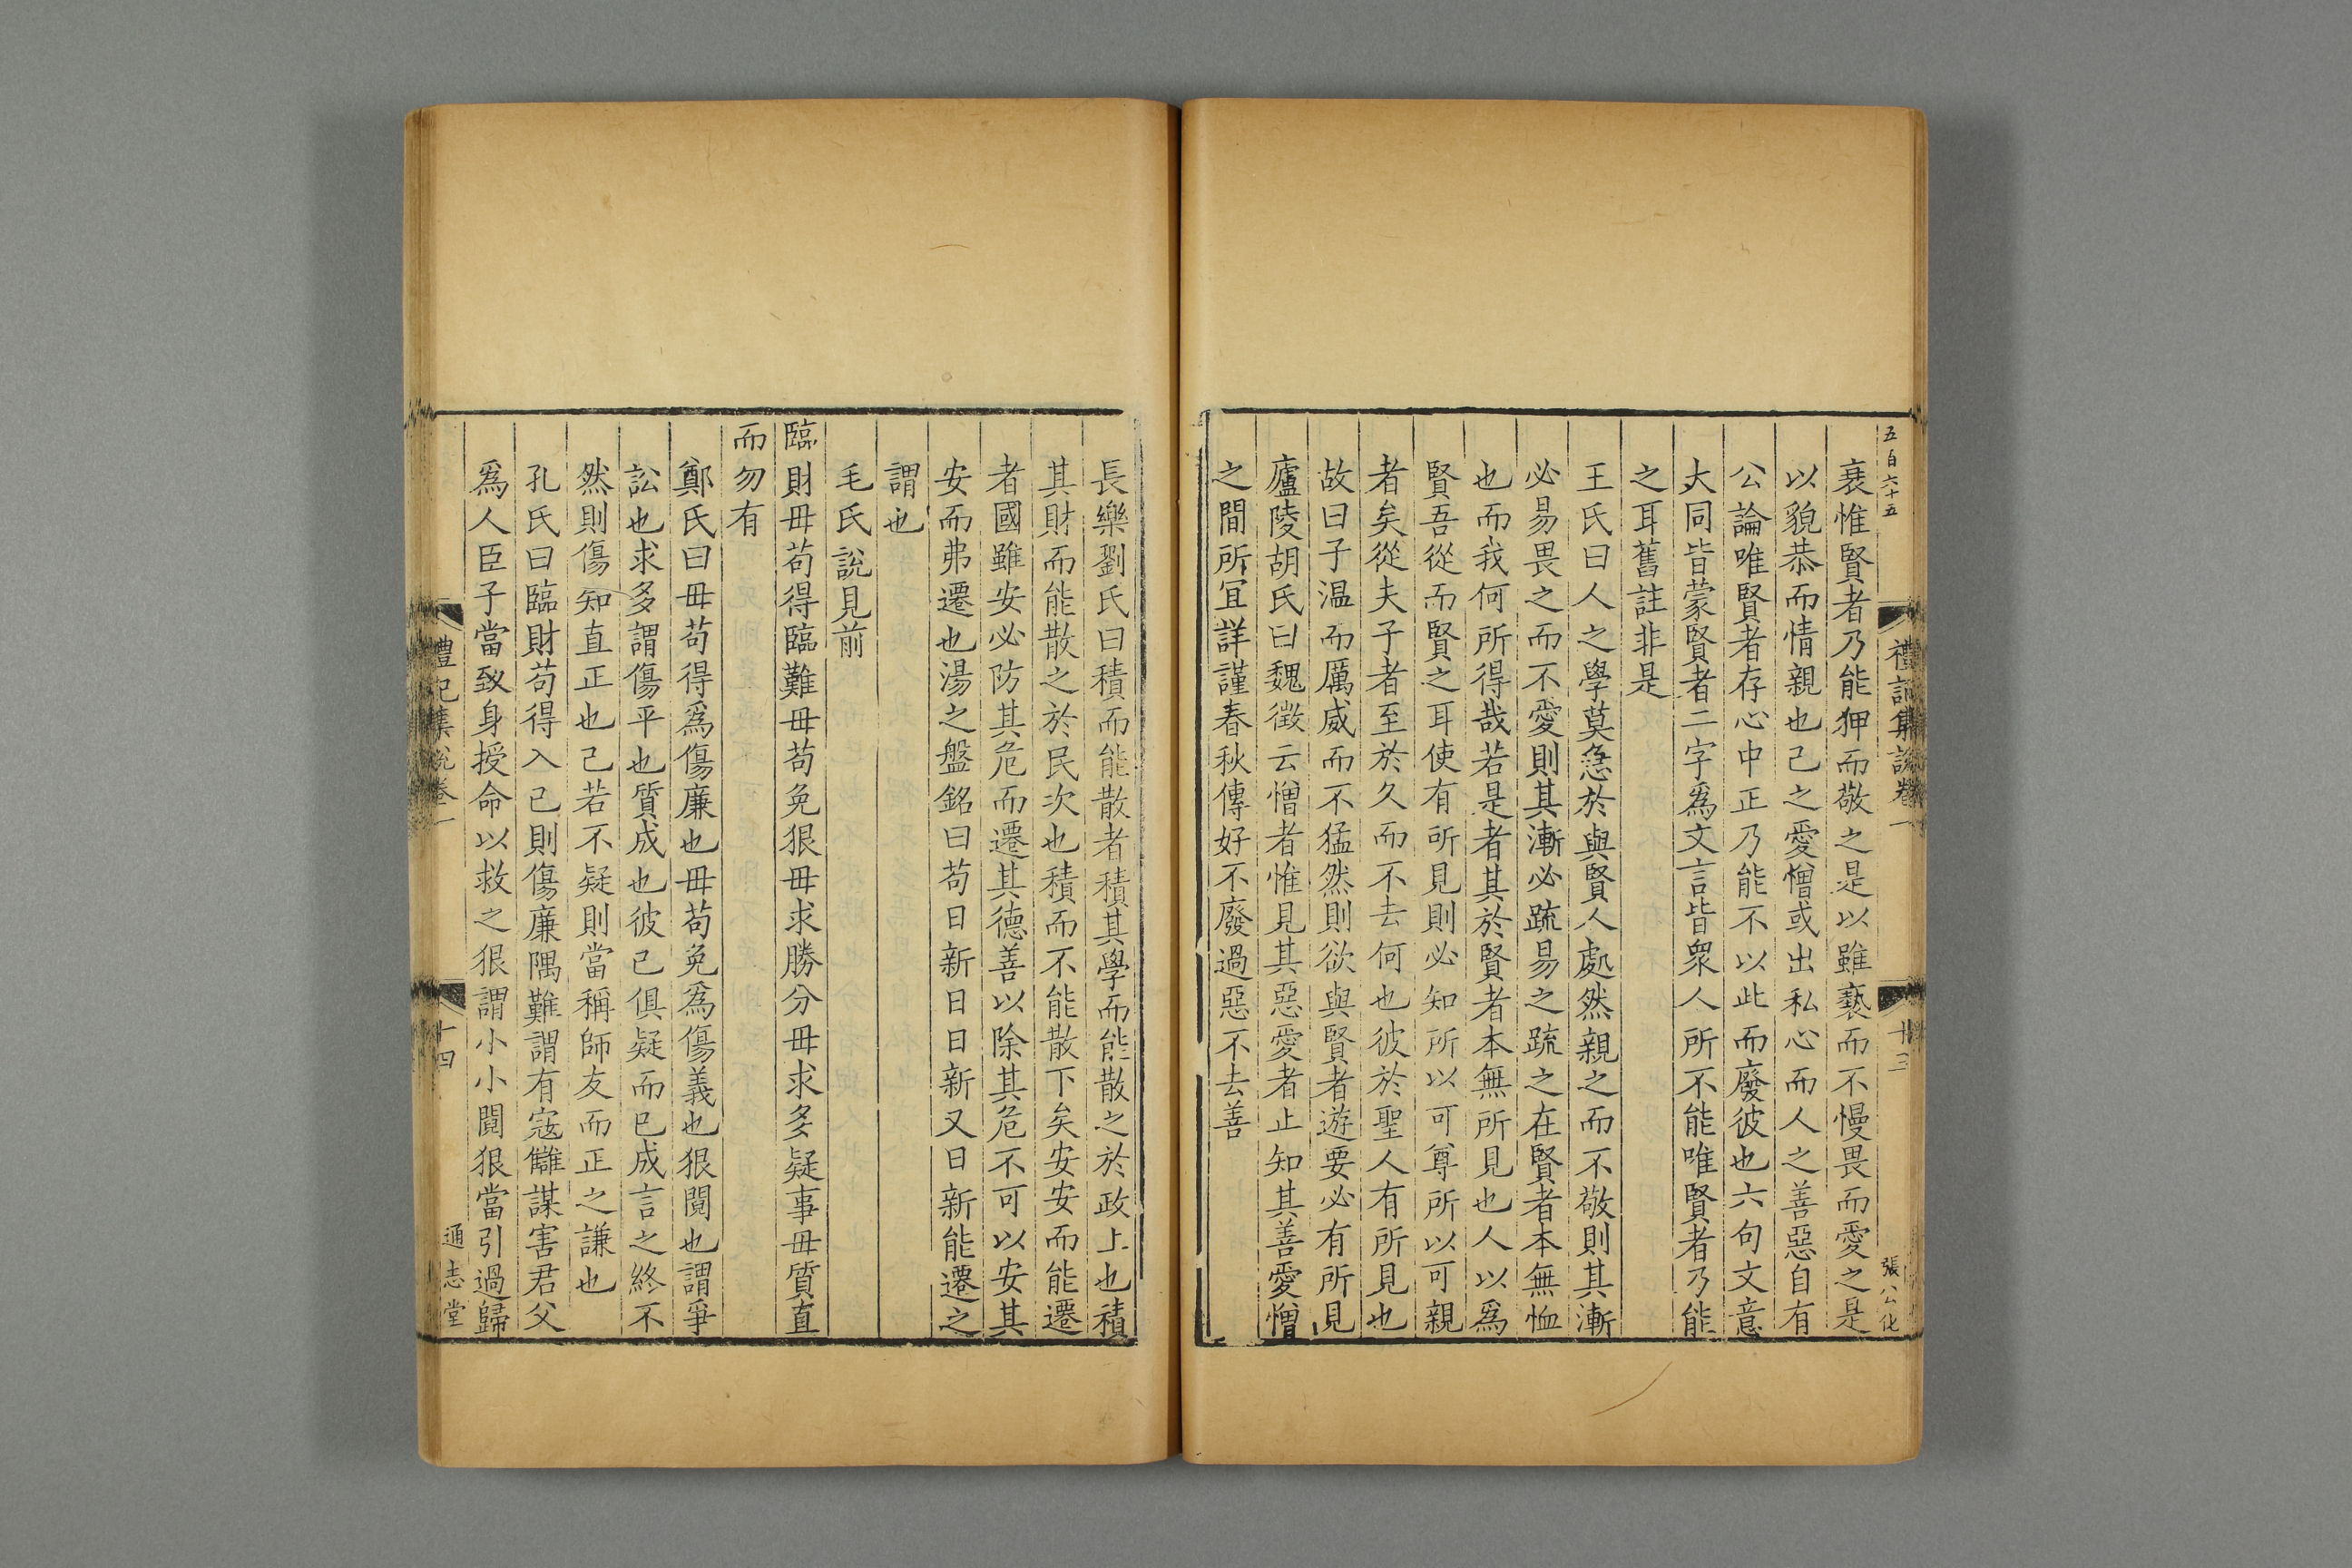 五百六十五
禮記集說卷一
十三
張公化
衰惟賢者乃能狎而敬之是以雖褻而不慢畏而愛之是
以貌恭而情親也己之愛憎或出私心而人之善惡自有
公論唯賢者存心中正乃能不以此而廢彼也六句文意
大同皆蒙賢者二字爲文言皆衆人所不能唯賢者乃能
之耳舊註非是
王氏曰人之學莫急於與賢人處然親之而不敬則其漸
必易畏之而不愛則其漸必疏易之疏之在賢者本無恤
也而我何所得哉若是者其於賢者本無所見也人以爲
賢吾從而賢之耳使有所見則必知所以可尊所以可親
者矣從夫子者至於久而不去何也彼於聖人有所見也
故曰子温而厲威而不猛然則欲與賢者遊要必有所見
廬陵胡氏曰魏徵云憎者惟見其惡愛者止知其善愛憎
之間所宜詳謹春秋傳好不廢過惡不去善
長樂劉氏曰積而能散者積其學而能散之於政上也積
其財而能散之於民次也積而不能散下矣安安而能遷
者國雖安必防其危而遷其德善以除其危不可以安其
安而弗遷也湯之盤銘曰苟日新日日新又日新能遷之
謂也
毛氏說見前
臨財毋苟得臨難毋苟免狠毋求勝分毋求多疑事毋質直
而勿有
鄭氏曰毋苟得爲傷廉也毋苟免爲傷義也狠鬩也謂爭
訟也求多謂傷平也質成也彼己俱疑而已成言之終不
然則傷知直正也己若不疑則當稱師友而正之謙也
孔氏曰臨財苟得入己則傷廉隅難謂有寇讎謀害君父
爲人臣子當致身授命以救之狠謂小小鬩狠當引過歸
禮記集說卷一
十四
通志堂